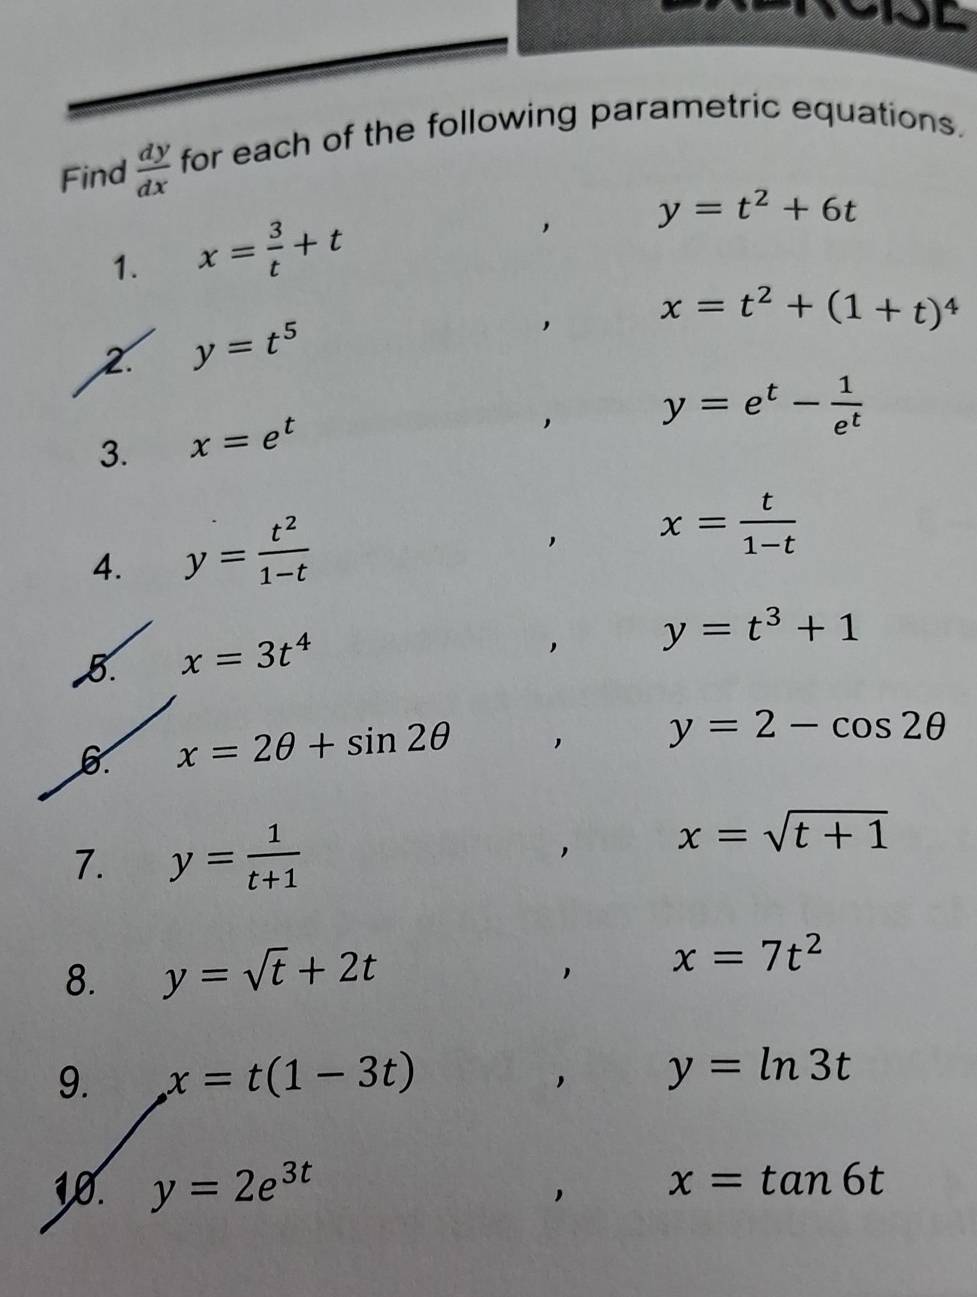 EXERCISE
Find dy/dx for each of the following parametric equations.
1. x = 3/t + t , y = t² + 6t
2. y = t⁵ , x = t² + (1 + t)⁴
3. x = eᵗ , y = eᵗ − 1/eᵗ
4. y = t²/(1−t) , x = t/(1−t)
5. x = 3t⁴ , y = t³ + 1
6. x = 2θ + sin 2θ , y = 2 − cos 2θ
7. y = 1/(t+1) , x = √(t + 1)
8. y = √t + 2t , x = 7t²
9. x = t(1 − 3t) , y = ln 3t
10. y = 2e³ᵗ , x = tan 6t